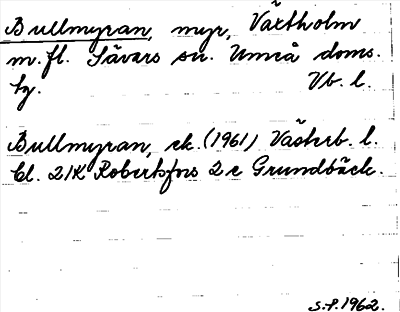 Bullmyran, myr, Växtholm
m.fl. Sävars sn. Umeå doms.
tg. Vb. l.
Bullmyran, ek. (1961) Västerb. l.
bl. 21K Robertsfors 2 c Grundbäck.
S.P. 1962.